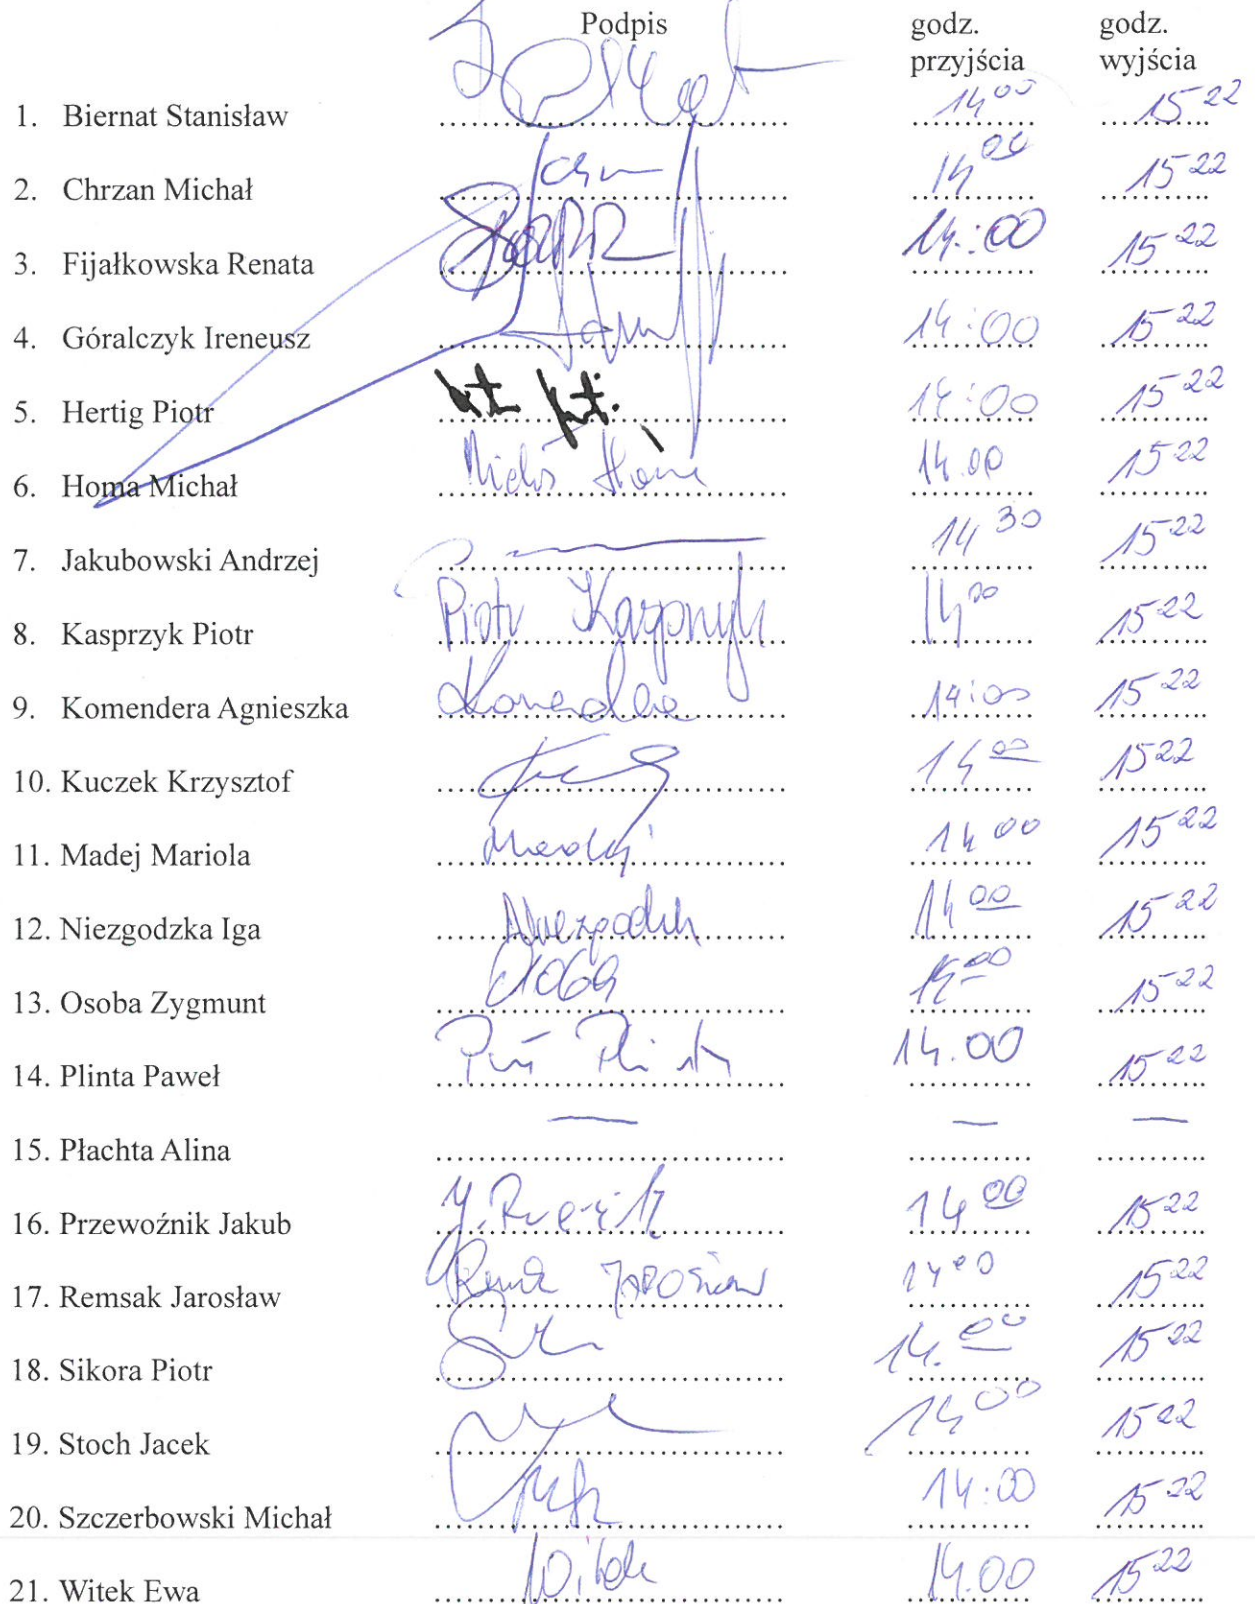 Podpis godz. godz.
przyjścia wyjścia
1. Biernat Stanisław 14 00 15 22
2. Chrzan Michał 14 00 15 22
3. Fijałkowska Renata 14:00 15 22
4. Góralczyk Ireneusz 14:00 15 22
5. Hertig Piotr 14:00 15 22
6. Homa Michał 14.00 15 22
7. Jakubowski Andrzej 14 30 15 22
8. Kasprzyk Piotr Piotr Kasprzyk 14 00 15 22
9. Komendera Agnieszka Komendera 14:00 15 22
10. Kuczek Krzysztof 14 00 15 22
11. Madej Mariola Madej 14 00 15 22
12. Niezgodzka Iga 14 00 15 22
13. Osoba Zygmunt Osoba 14 00 15 22
14. Plinta Paweł 14.00 15 22
15. Płachta Alina — — —
16. Przewoźnik Jakub 14 00 15 22
17. Remsak Jarosław Jarosław 14 00 15 22
18. Sikora Piotr 14.00 15 22
19. Stoch Jacek 14 00 15 22
20. Szczerbowski Michał 14:00 15 22
21. Witek Ewa Witek 14.00 15 22